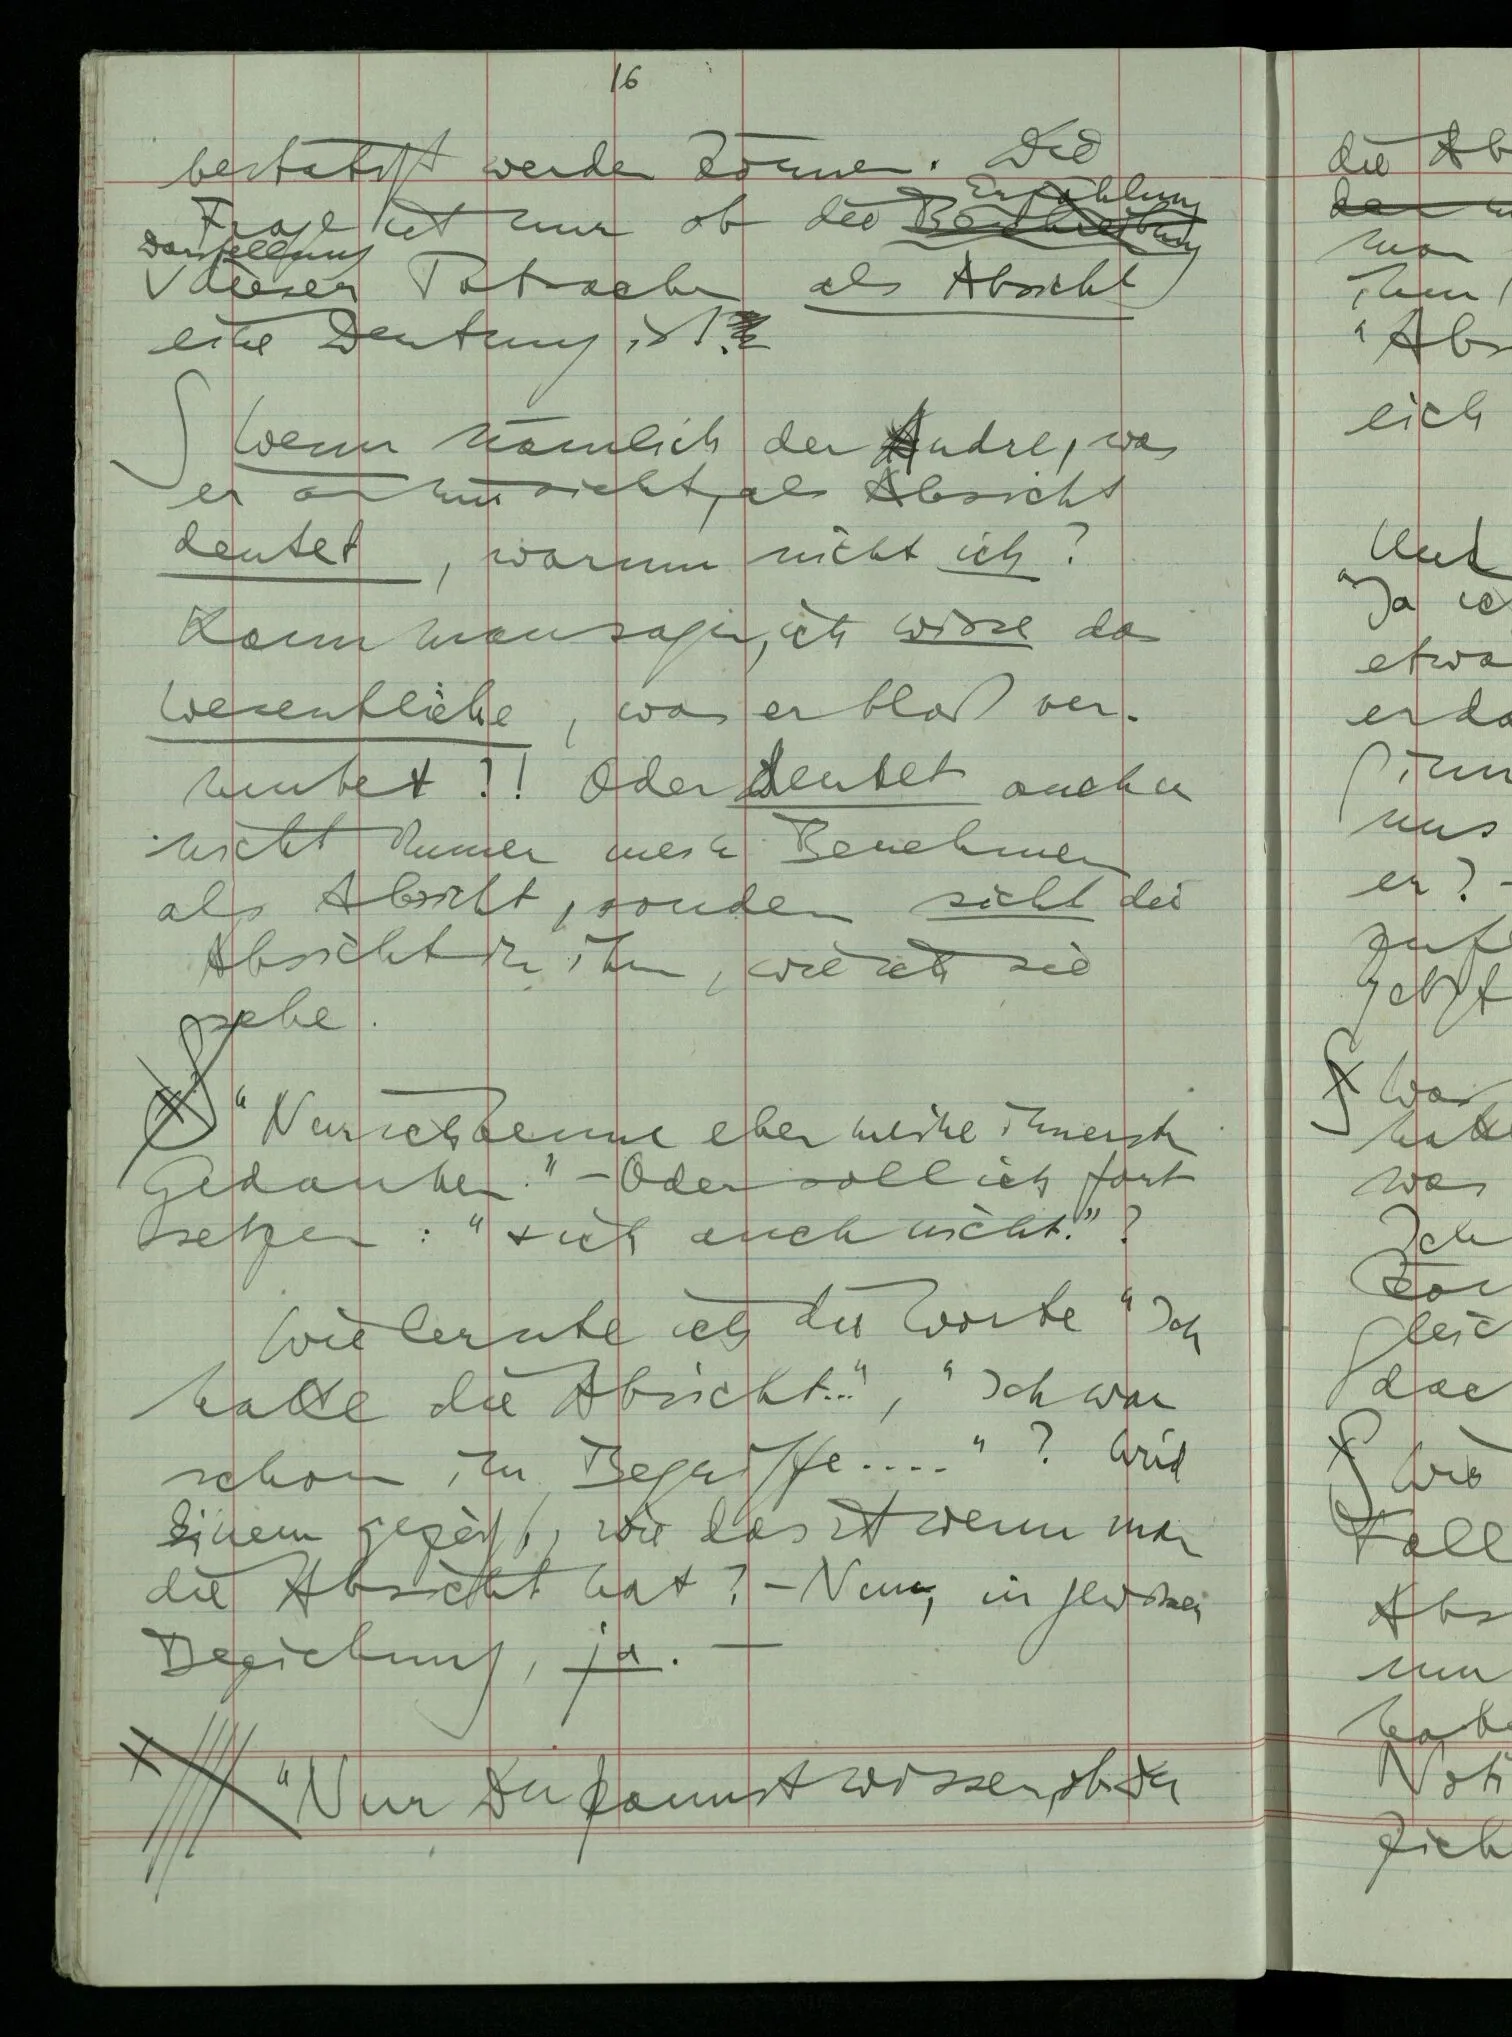 16
bestätigt werden können. Die
Erzählung
Frage ist nur ob die Beschreibung
Darstellung
dieser Tatsachen als Absicht
eine Deutung ist?
∫ Wenn nämlich der Andre, was
er an mir sieht, als Absicht
deutet, warum nicht ich?
Kann man sagen, ich wisse das
Wesentliche, was er bloß ver-
mutet?! Oder deutet auch er
nicht immer mein Benehmen
als Absicht, sondern sieht die
Absicht in ihm, wie ich sie
sehe.
"Nur ich kenne eben meine innersten
Gedanken." – Oder soll ich fort
setzen: "& ich auch nicht."?
Wie lernte ich die Worte "Ich
hatte die Absicht...", "Ich war
schon im Begriffe...."? Wird
Einem gezeigt, wie das ist wenn man
die Absicht hat? – Nun, in gewisser
Beziehung, ja. —
"Nur Du kannst wissen, ob Du
die Ab
man
ihm
"Abs
eich
Und
"Ja ic
etwa
er da
uns
er? –
zufä
jetzt
∫ Was
hatt
was
Ich
kön
gleic
doc
∫ Wie
Fall
Abs
nun
habe
Noti
zieh